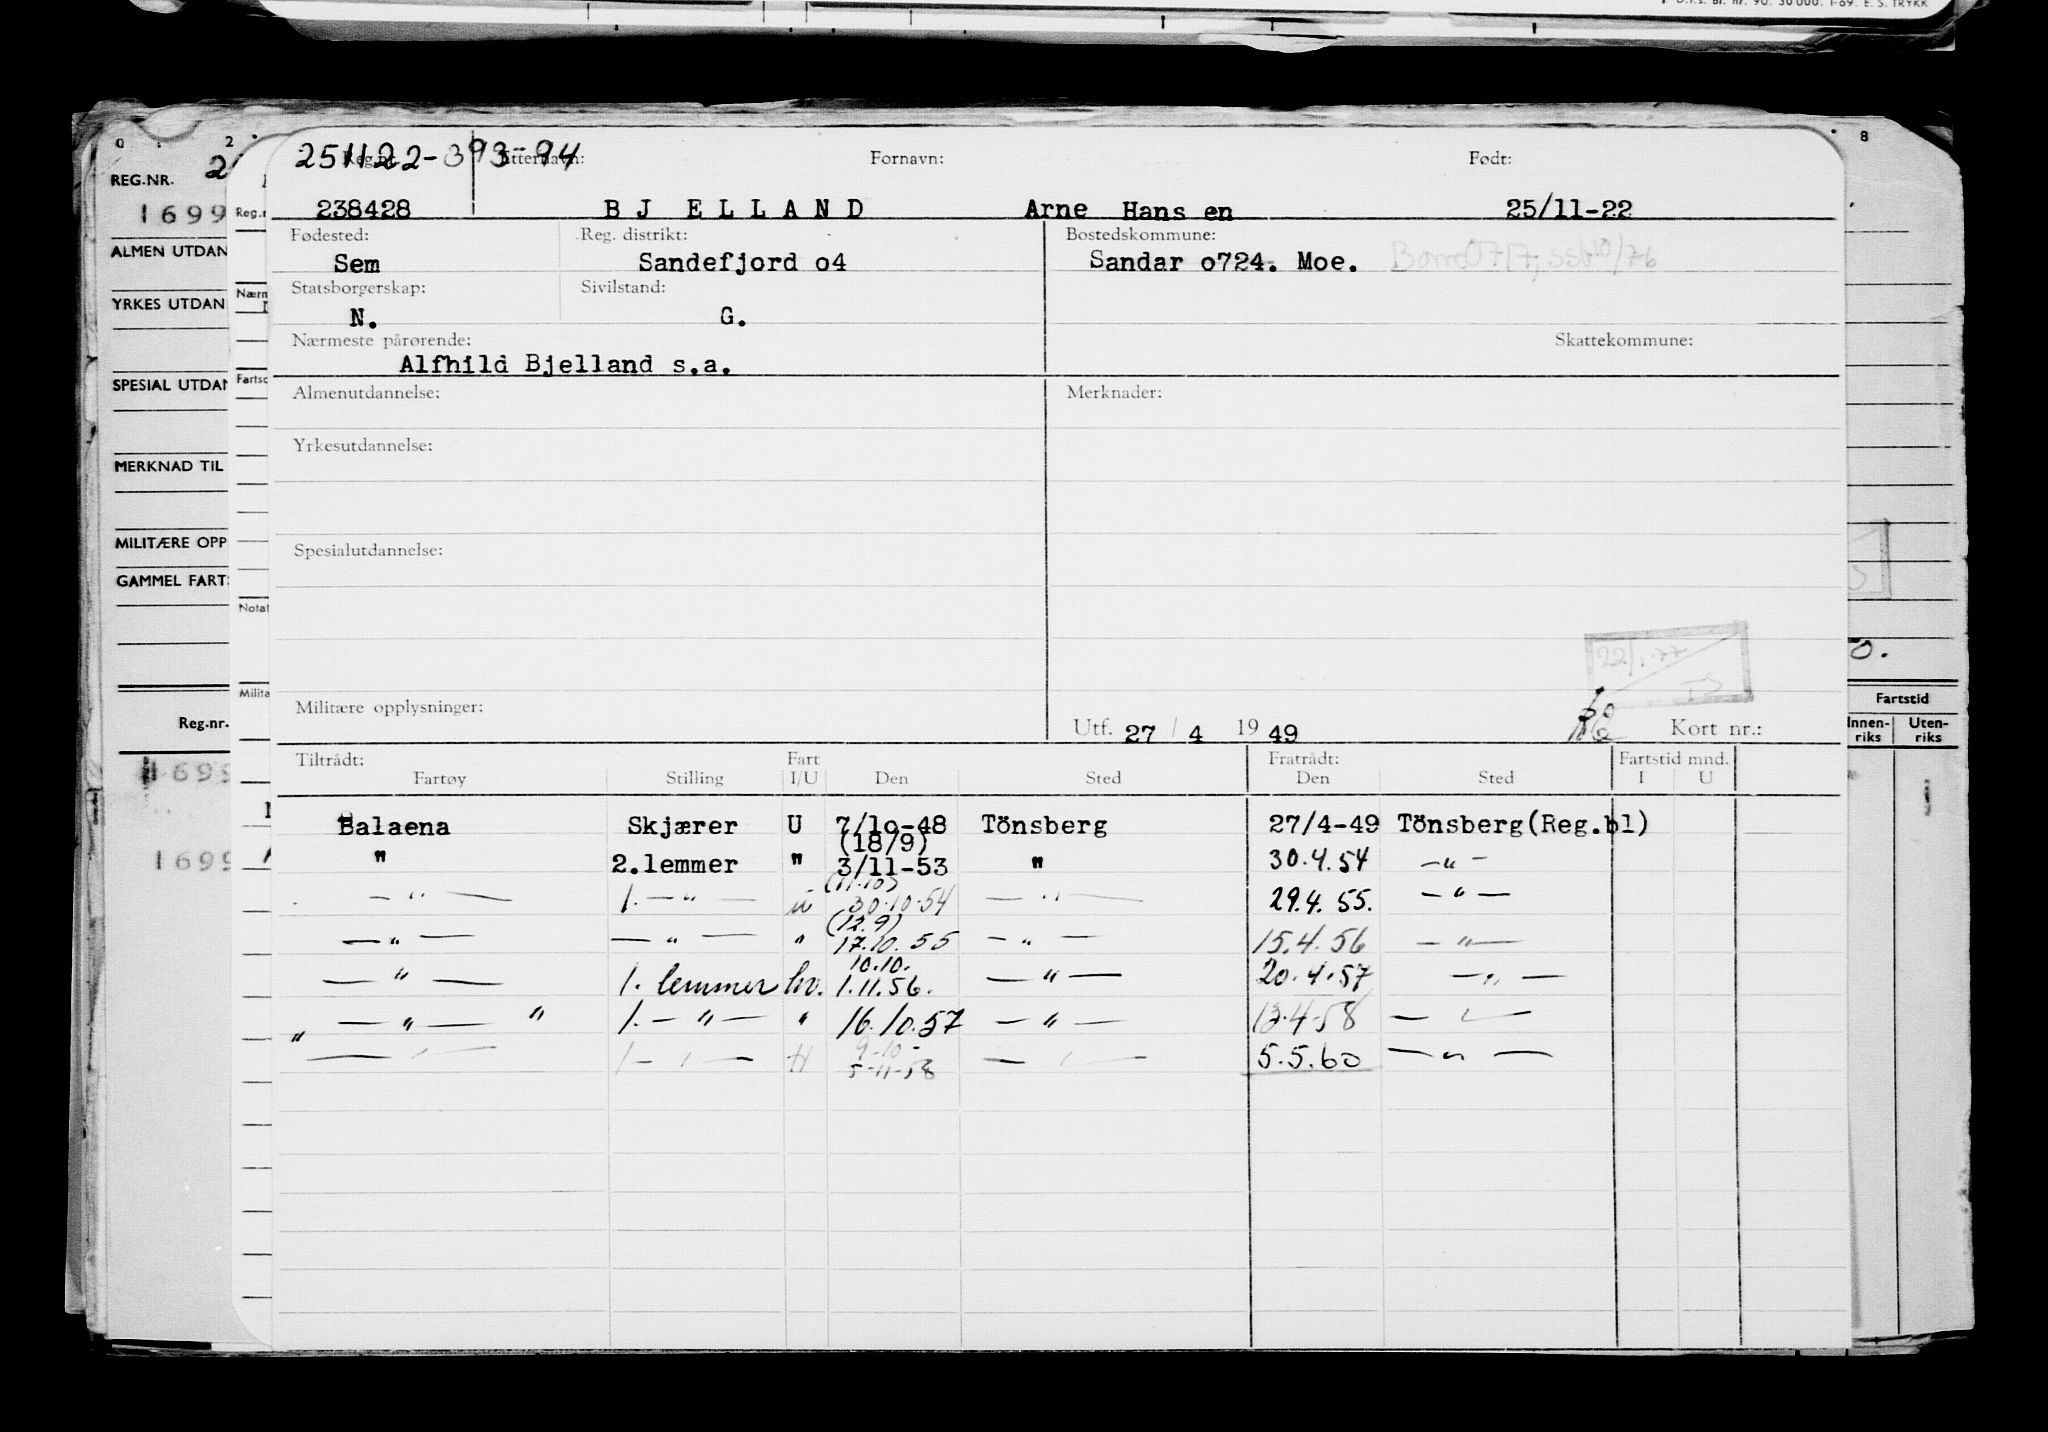 D.f.s. bl. nr. 90. 30 000. 1-69. E. S. TRYKK
0 2 8
REG.NR.
1699
ALMEN UTDAN
YRKES UTDAN
SPESIAL UTDAN
MERKNAD TIL
MILITÆRE OPP
GAMMEL FARTS
Reg.nr.
1699
1699
Reg.n
Nærm
Fartsc
Notat
Milita
Fartstid
Innen-riks Uten-riks
251122-393-94
Reg.nr. Etternavn: Fornavn: Født:
238428 BJELLAND Arne Hansen 25/11-22
Fødested: Reg. distrikt: Bostedskommune:
Sem Sandefjord o4 Sandar o724. Moe. Borre 0717, ssb 10/76
Statsborgerskap: Sivilstand:
N. G.
Nærmeste pårørende: Skattekommune:
Alfhild Bjelland s.a.
Almenutdannelse: Merknader:
Yrkesutdannelse:
Spesialutdannelse:
22/1.77
TS
Militære opplysninger: Utf. 27 / 4 19 49 Kort nr.:
Tiltrådt: Fart Fratrådt: Fartstid mnd.
Fartøy Stilling I/U Den Sted Den Sted I U
Balaena Skjærer U 7/1o-48 Tönsberg 27/4-49 Tönsberg(Reg.bl)
(18/9)
" 2.lemmer " 3/11-53 " 30.4.54 —"—
(11.10)
—"— 1.—"— u 30.10.54 —"— 29.4.55. —"—
(12.9)
—"— —"— " 17.10.55 —"— 15.4.56 —"—
10.10.
—"— 1. lemmer hv. 1.11.56. —"— 20.4.57 —"—
" —"— " 1.—"— " 16.10.57 —"— 13.4-58 —"—
9-10-
—"— 1—"— H 5-11-58 —"— 5.5.60 —"—